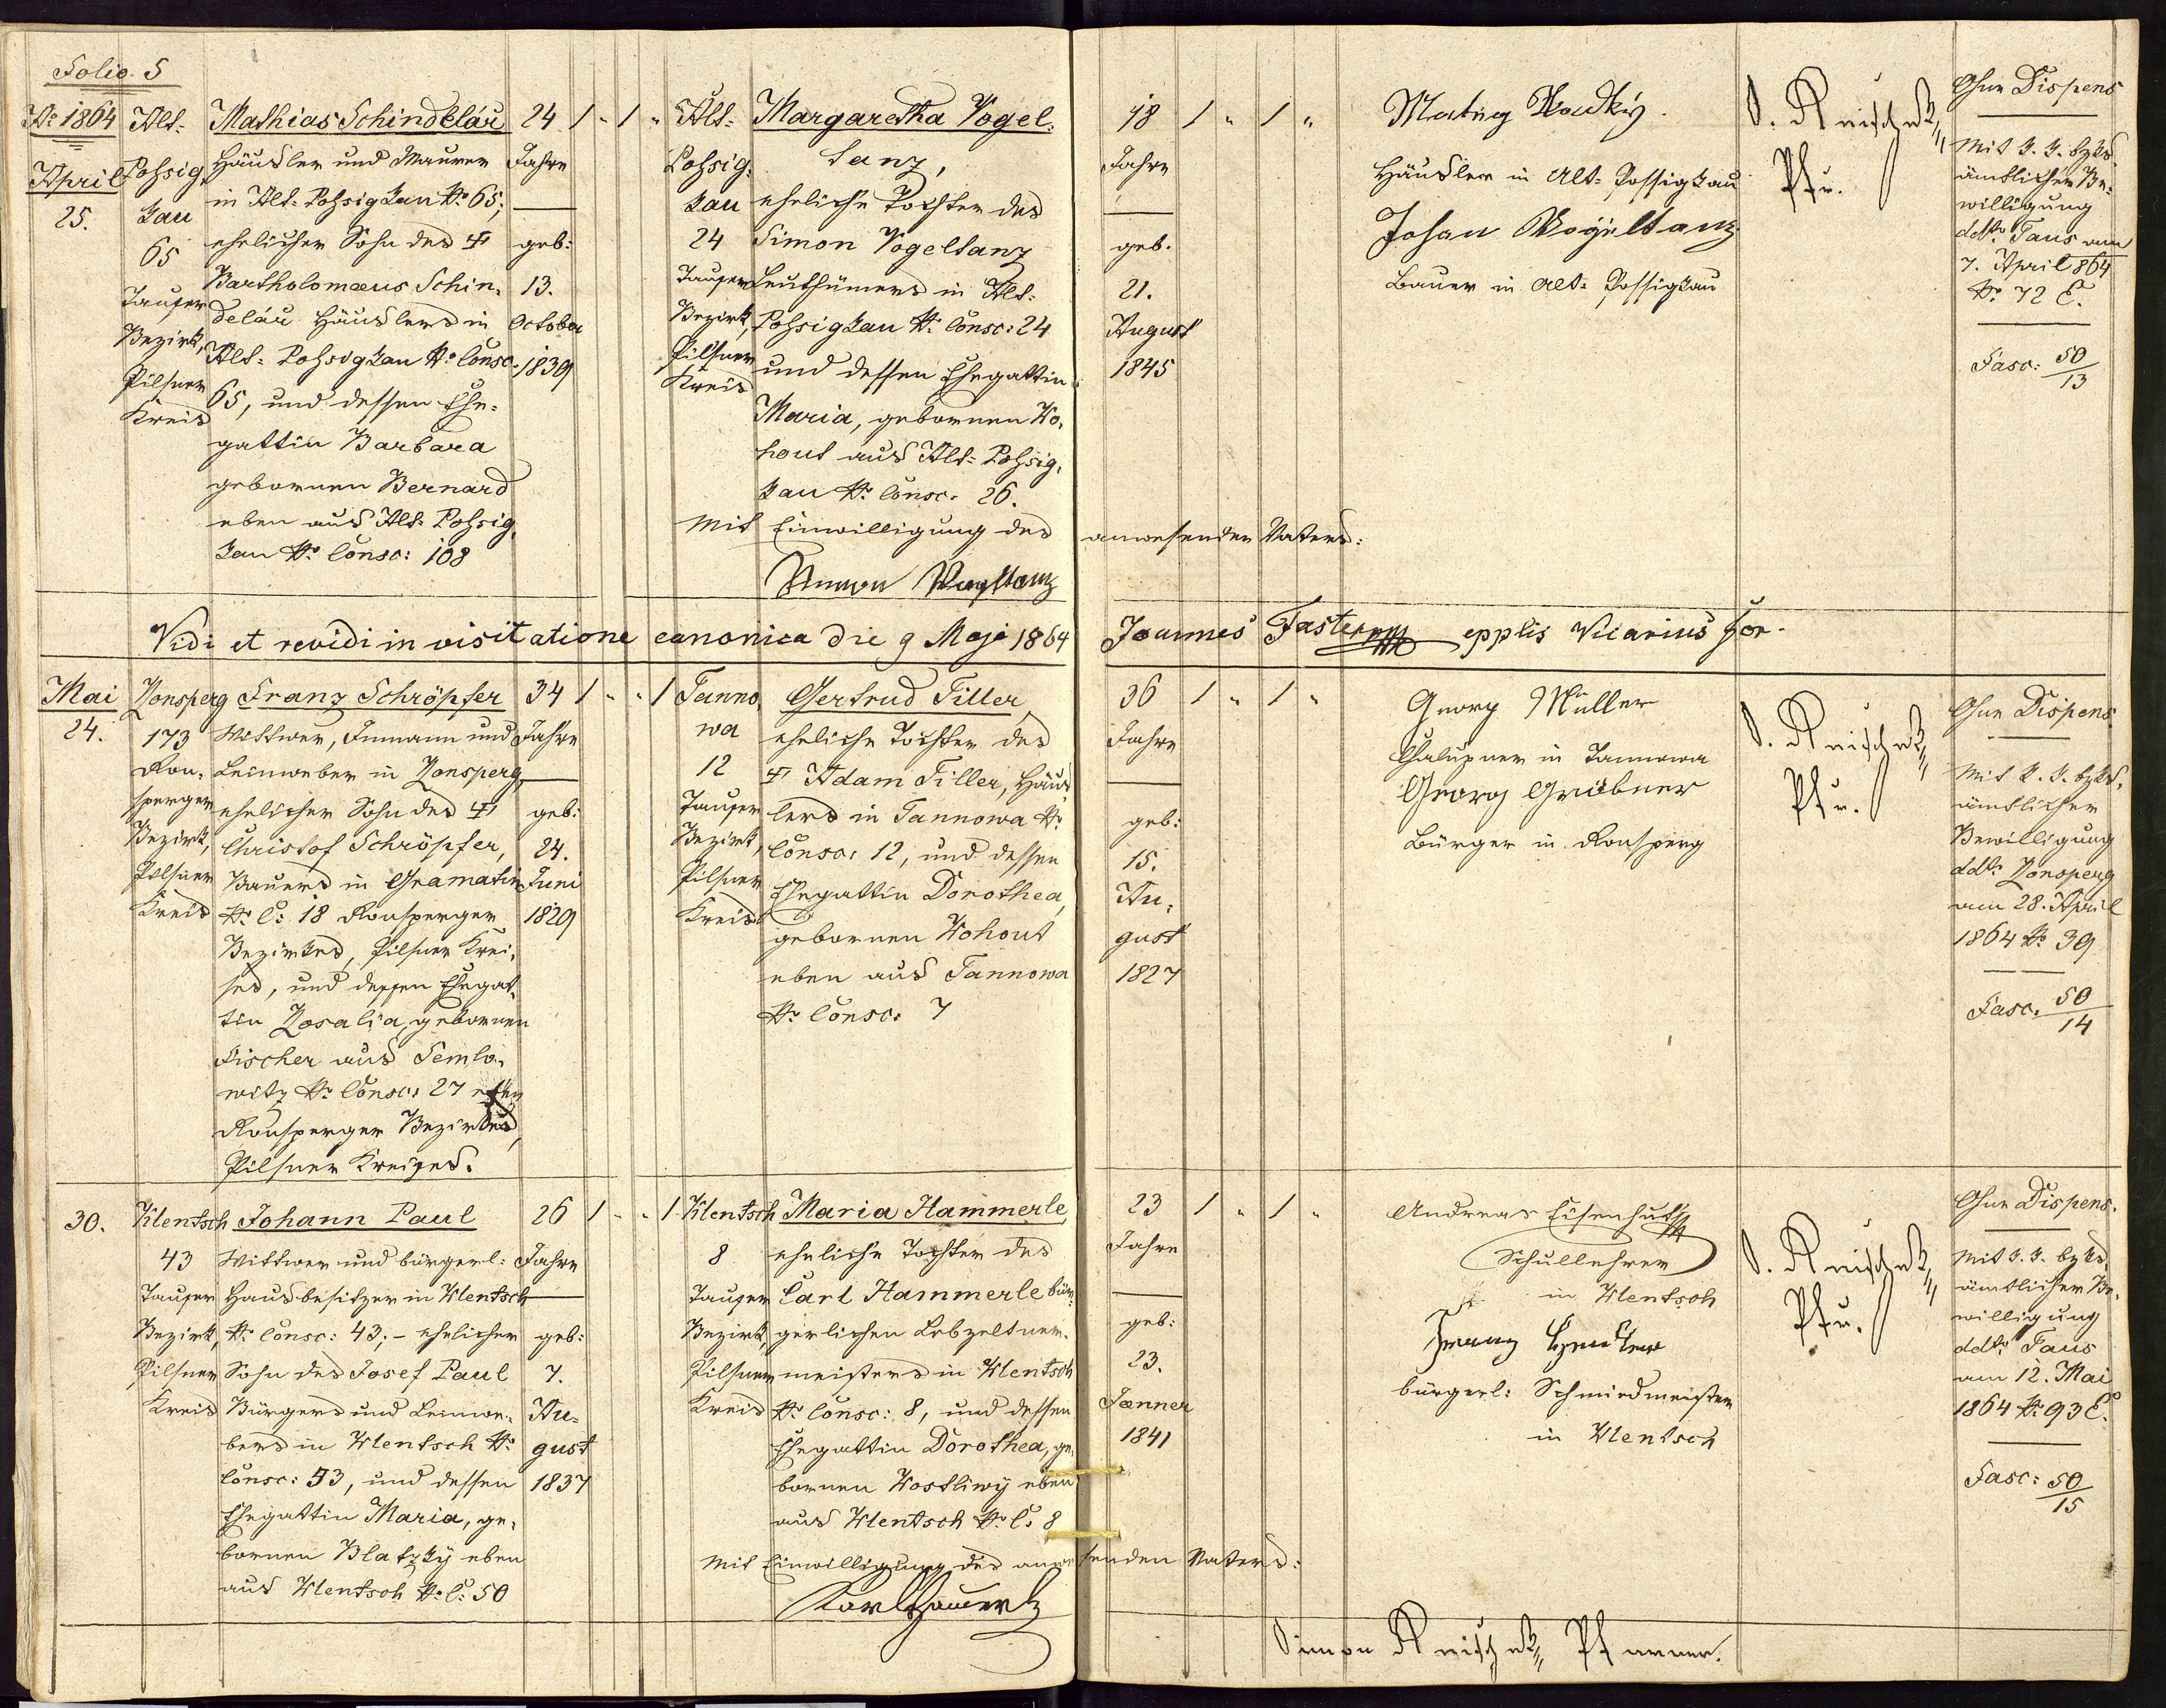 Folio 5
Ao 1864
April
25.
Alt-
Pohsig,
kau
65
Tauser
Bezirk,
Pilsner
Kreis
Mathias Schindelář
Häusler und Maurer
in Alt-Pohsigkau No 65;
ehelicher Sohn des †
Bartholomæus Schin,
delář Häuslers in
Alt-Pohsigkau No Consc.
65, und dessen Ehe-
gattin Barbara
gebornen Bernard
eben aus Alt-Pohsig,
kau No Consc: 108
24
Jahre
geb:
13.
October
1839
1 " 1 "
Alt-
Pohsig,
kau
24
Tauser
Bezirk,
Pilsner
Kreis
Margaretha Vogel-
tanz,
eheliche Tochter des
Simon Vogeltanz
in Alt-
Pohsigkau No Consc: 24
und dessen Ehegattin
Maria, gebornen Ko,
hout aus Alt-Pohsig,
kau No Consc. 26.
Mit Einwilligung des anwesenden Vaters:
18
Jahre
geb.
21.
August
1845
1 " 1 "
Häusler in Alt-Possigkau
Johan Wogeltanz
Bauer in Alt-Possigkau
Pfr.
Ohne Dispens
Mit k. k. bzks.
ämtlicher Be-
willigung
ddto Taus am
7. April 864
No 72 E.
Fasc: 50/13
Vidi et revidi in visitatione canonica die 9 Maji 1864 Joannes epplis Vicarius For.
Mai
24.
Ronsperg
173
Ron,
sperger
Bezirk,
Pilsner
Kreis
Franz Schröpfer
Wittwer, Inmann und
Leinweber in Ronsperg,
ehelicher Sohn des †
Christof Schröpfer,
Bauers in Gramatin
No C: 18 Ronsperger
Bezirkes, Pilsner Krei,
ses, und dessen Ehegat,
tin Rosalia, gebornen
Fischer aus Semlo,
witz No Consc: 27 eben
Ronsperger Bezirkes,
Pilsner Kreises.
34
Jahre
geb:
24.
Juni
1829
1 " " 1
Tanno,
wa
12
Tauser
Bezirk,
Pilsner
Kreis
Gertrud Tiller,
eheliche Tochter des
† Adam Tiller, Häus,
lers in Tannowa No
Consc: 12, und dessen
Ehegattin Dorothea,
gebornen Kohout
eben aus Tannowa
No Consc: 7
36
Jahre
geb:
15.
Au,
gust
1827
1 " 1 "
Georg Müller
Chalupner in Tannowa
Georg Gröbner
Bürger in Ronsperg
Pfr.
Ohne Dispens
Mit k. k. bzks.
ämtlicher
Bewilligung
ddto Ronsperg
am 28. April
1864 No 39
Fasc. 50/14
30.
Klentsch
43
Tauser
Bezirk,
Pilsner
Kreis
Johann Paul
Wittwer und bürgerl:
Hausbesitzer in Klentsch
No Consc: 43; - ehelicher
Sohn des Josef Paul
Bürgers und Leinwe-
bers in Klentsch No
Consc: 43, und dessen
Ehegattin Maria, ge,
bornen Blatzky eben
aus Klentsch No C: 50
26
Jahre
geb:
7.
Au-
gust
1837
1 " " 1
Klentsch
8
Tauser
Bezirk,
Pilsner
Kreis
Maria Hammerle,
eheliche Tochter des
Carl Hammerle bür-
gerlichen Lebzeltner-
meisters in Klentsch
No Consc: 8, und dessen
Ehegattin Dorothea, ge,
bornen Wostliwy eben
aus Klentsch No C: 8
Mit Einwilligung des anwesenden Vaters:
23
Jahre
geb:
23.
Jænner
1841
1 " 1 "
Andreas Eisenhut
Schullehrer
in Klentsch
Franz
bürgerl: Schmiedmeister
in Klentsch
Pfr.
Ohne Dispens.
Mit k. k. bzks.
ämtlicher Be,
willigung
ddto Taus
am 12. Mai
1864 No 93 E.
Fasc: 50/15
Simon Pfarrer.